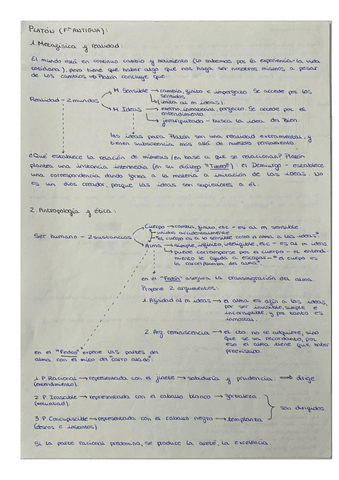 PLATÓN (Fª ANTIGUA):
1. Metafísica y realidad.
El mundo está en continuo cambio y movimiento (lo sabemos por la experiencia: la vida
cotidiana), pero tiene que haber algo que nos haga ser nosotros mismos a pesar
de los cambios → Platón concluye que:
M. Sensible → cambia, finito e imperfecto. Se accede por los
sentidos.
(imita al m. ideas).
Realidad - 2 mundos
M. Ideas → eterno, inmaterial, perfecto. Se accede por el
entendimiento.
jerarquizado - busca la idea del Bien
Las ideas para Platón son una realidad extramental, y
tienen subsistencia más allá de nuestro pensamiento.
¿Qué establece la relación de mímesis (en base a qué se relacionan? Platón
plantea una instancia intermedia (en su diálogo "Timeo") el Demiurgo - establece
una correspondencia dando forma a la materia a imitación de las ideas. No
es un dios creador, porque las ideas son superiores a él.
2. Antropología y Ética:
Cuerpo → cambia, finito, etc - es al m. sensible
unidos accidentalmente
"El cuerpo es a lo sensible como el alma a las ideas"
Ser humano - 2 sustancias
Alma → simple, infinita, inteligible, etc - es al m. idea
puede corromperse por el cuerpo - el entendimiento
le ayuda a escapar - "el cuerpo es
la cárcel/tumba del alma".
en el "Fedón" asegura la transmigración del alma.
Propone 2 argumentos:
1. Afinidad al m. ideas → el alma es afín a las ideas,
por ser invisible, simple e
incorruptible, y por tanto es
inmortal.
2. Arg. reminiscencia → el cto. no se adquiere, sino
que es un recordatorio, por
eso el alma tiene que haber
preexistido
en el "Fedro" expone las partes del
alma con el mito del carro alado:
1. P. Racional → representada con el jinete → sabiduría y prudencia → dirige
(entendimiento).
2. P. Irascible → representada con el caballo blanco → fortaleza
(voluntad)
son dirigidos
3. P. Concupiscible → representada con el caballo negro → templanza
(deseos e instintos)
Si la parte racional predomina, se produce la areté, la excelencia.